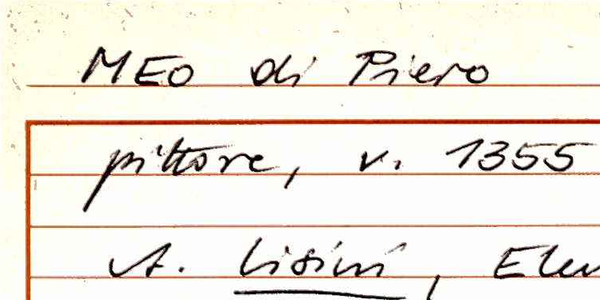 MEO di Piero
pittore, v. 1355
A. Lisini, Elen